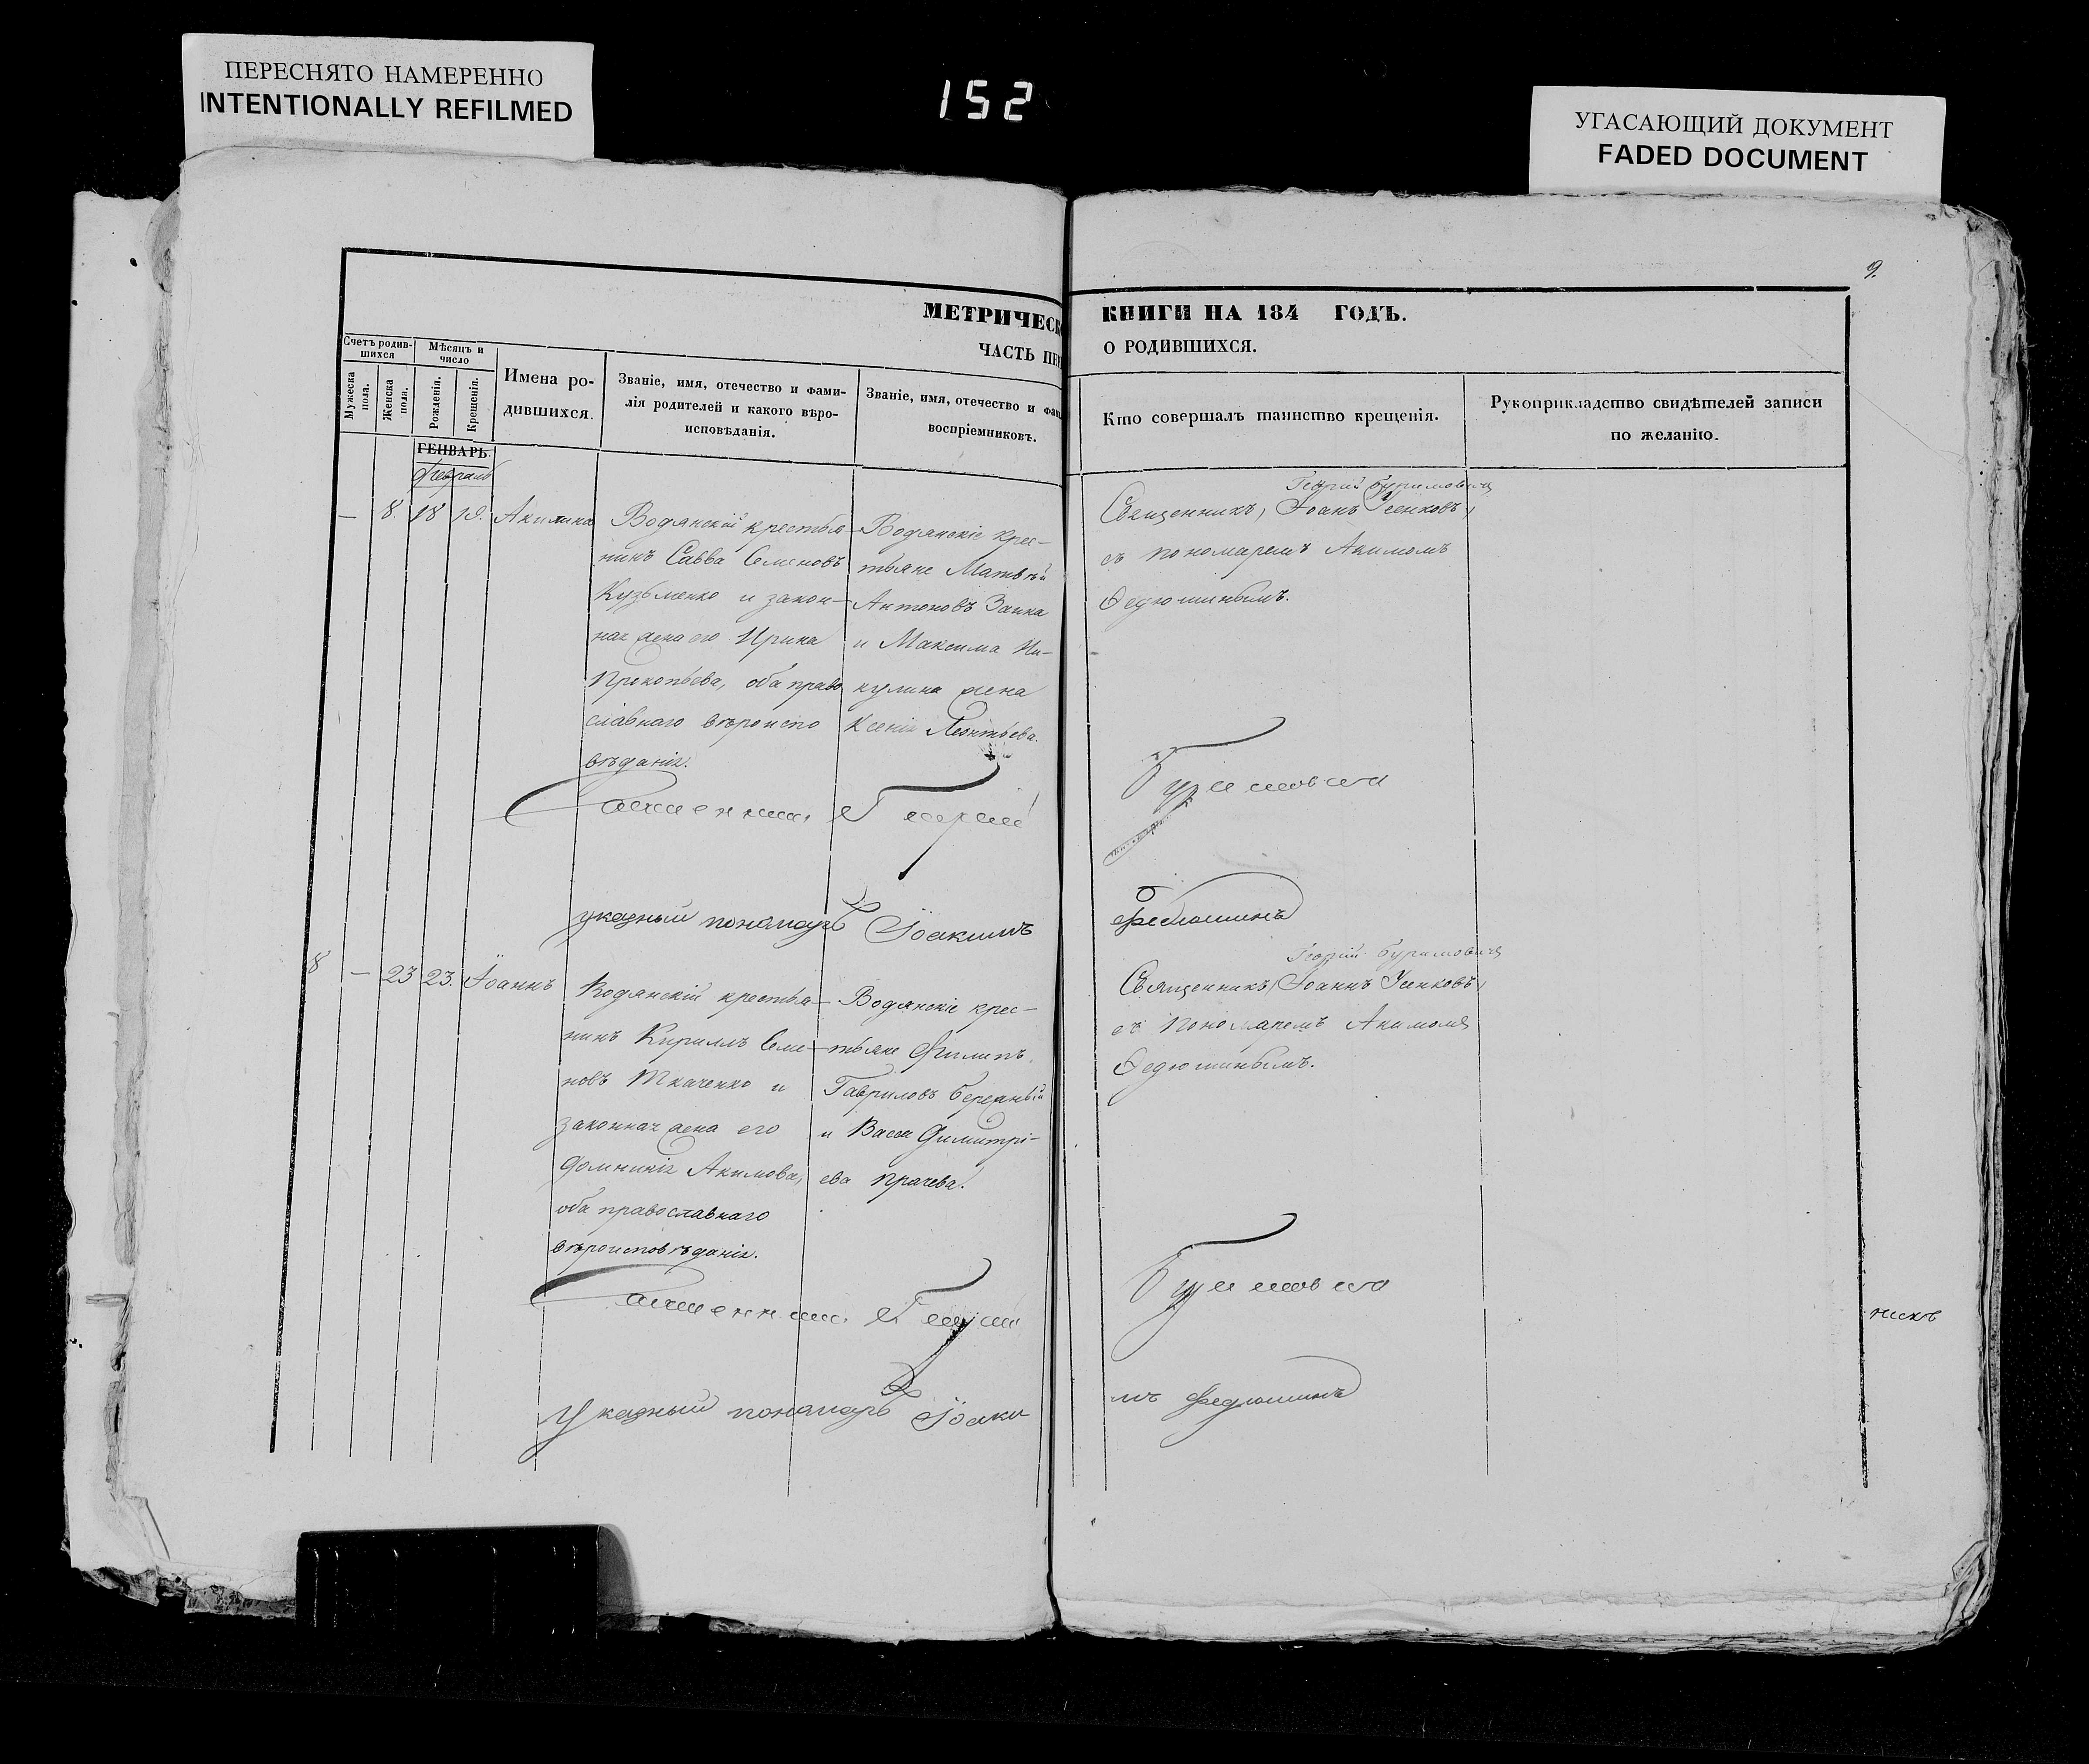 ПЕРЕСНЯТО НАМЕРЕННО
INTENTIONALLY REFILMED
152
УГАСАЮЩИЙ ДОКУМЕНТ
FADED DOCUMENT
9.
МЕТРИЧЕСК
КНИГИ НА 184 ГОДЪ.
ЧАСТЬ ПЕР
О РОДИВШИХСЯ.
Счетъ родив-
шихся
Мужеска
пола.
Женска
пола.
Мѣсяцъ и
число
Рожденія.
Крещенія.
Имена ро-
дившихся.
Званіе, имя, отечество и фами-
лія родителей и какого вѣро-
исповѣданія.
Званіе, имя, отечество и фами
воспріемниковъ.
Кто совершалъ таинство крещенія.
Рукоприкладство свидѣтелей записи
по желанію.
ГЕНВАРЬ.
февраль
— 8. 18 19. Акилина
Водянскій крестья-
нинъ Савва Семеновъ
Кузьменко и закон-
ная жена его Ирина
Прокопьева, оба право
славнаго вѣроиспо
вѣданія.
Водянскіе крес-
тьяне Матвѣй
Антоновъ Заика
и Максима Ни-
кулина жена
Ксенія Леонтьева.
Георгій Буримовичъ
Священникъ, Іоанъ Усенковъ,
съ пономаремъ Акимомъ
Федюшинымъ.
Священникъ Георгій
Буримовичъ
указный пономарь Іоакимъ
Федюшинъ
8 — 23 23. Іоаннъ
Водянскій крестья-
нинъ Кириллъ Семе-
новъ Ткаченко и
законная жена его
Домникія Акимова,
оба православнаго
вѣроисповѣданія.
Водянскіе крес-
тьяне Филипъ
Гавриловъ Бережный
и Васса Димитрі-
ева Прачева.
Георгій Буримовичъ
Священникъ, Іоаннъ Усенковъ,
съ пономаремъ Акимомъ
Федюшинымъ.
Священникъ Георгій
Буримовичъ
Указный пономарь Іоаки
мъ Федюшинъ
никъ